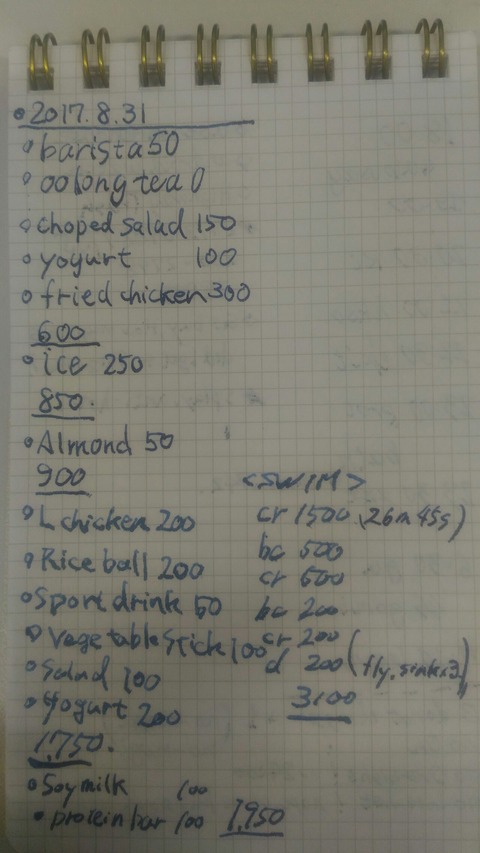 2017.8.31
barista 50
oolong tea 0
choped salad 150
yogurt 100
fried chicken 300
600
ice 250
850.
Almond 50
900
L chicken 200
Rice ball 200
Sport drink 50
Vegetable Stick 100
Salad 100
Yogurt 200
1,750.
Soymilk 100
protein bar 100 1,950
<SWIM>
cr 1500 (26m 45s)
bc 500
cr 500
bc 200
cr 200
d 200 (fly.
3100